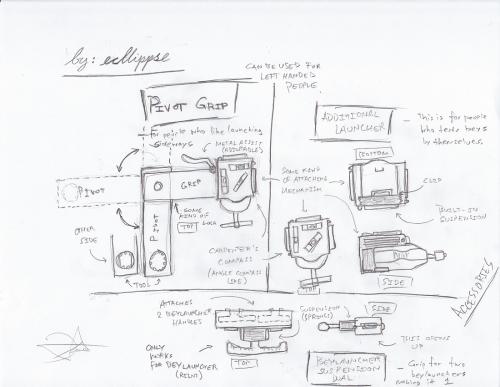 by: ecllippse
PIVOT GRIP
- For people who like launching
sideways
METAL ASSIST
(ADJUSTABLE)
CAN BE USED FOR
LEFT HANDED
PEOPLE
PIVOT
GRIP
PIVOT
SOME
KIND OF
LOCK
TOP
OTHER
SIDE
TOOL
CARPENTER'S
COMPASS
(ANGLE COMPASS
LIKE)
SOME KIND
OF ATTACHING
MECHANISM
TOP
ADDITIONAL
LAUNCHER
- This is for people
who test beys
by themselves.
BOTTOM
CLIP
BUILT-IN
SUSPENSION
SIDE
ACCESSORIES
ATTACHES
2 BEYLAUNCHER
HANDLES
ONLY
WORKS
FOR BEYLAUNCHER
TOP
SUSPENSION
(SPRINGS)
SIDE
THIS OPENS
UP
BEYLAUNCHER
SUSPENSION
DUAL
- Grip for two
beylaunchers
making it 1